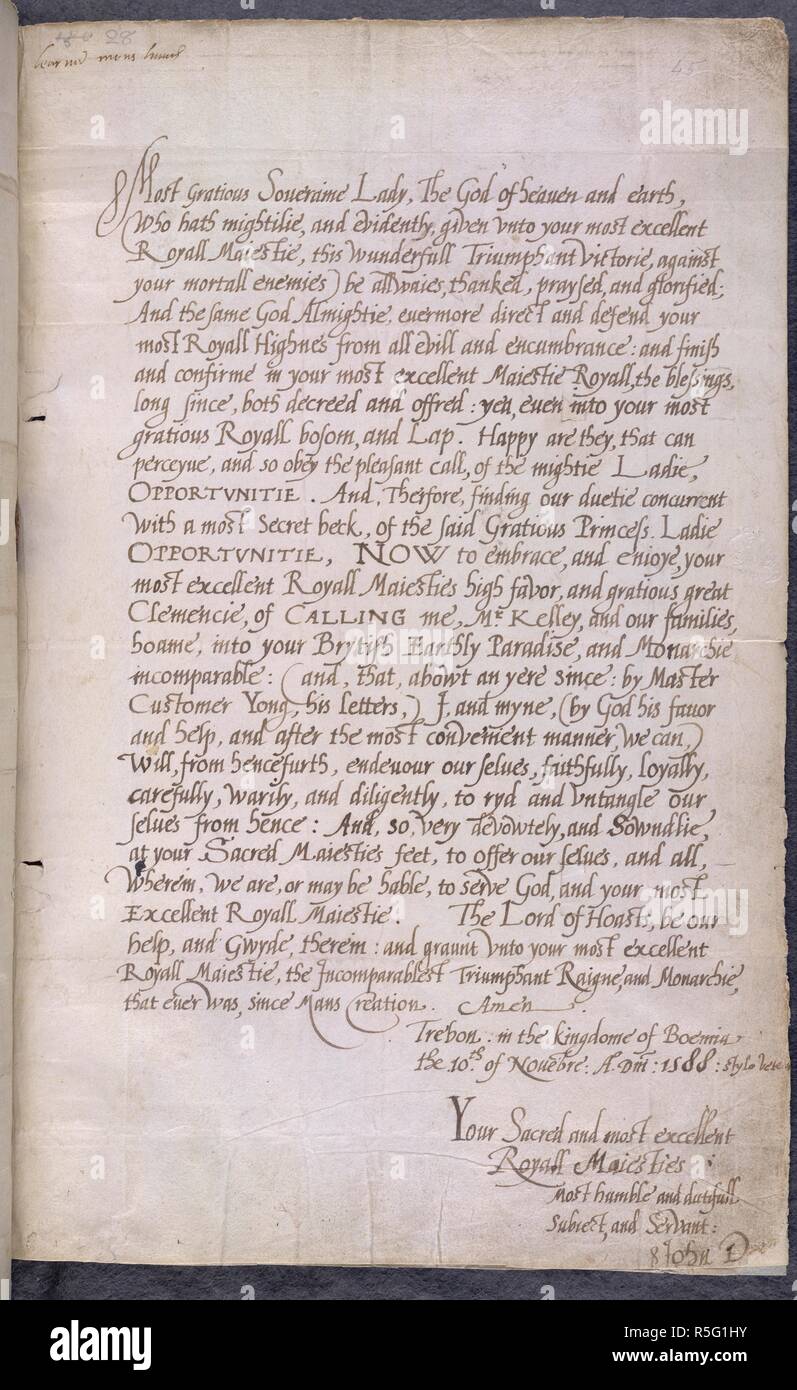 28
45
Most Gratious Soueraine Lady, The God of heauen and earth,
(Who hath mightilie, and evidently, given vnto your most excellent
Royall Maiestie, this wunderfull Triumphant Victorie, against
your mortall enemies) be allwaies, thanked, praysed, and glorified;
And the same God Almightie, evermore direct and defend your
most Royall Highnes from all evill and encumbrance: and finish
and confirme in your most excellent Maiestie Royall, the blessings,
long since, both decreed and offred: yea, even into your most
gratious Royall bosom, and Lap. Happy are they, that can
perceyue, and so obey the pleasant call, of the mightie Ladie,
OPPORTVNITIE. And, Therfore, finding our duetie concurrent
with a most Secret beck, of the said Gratious Princess, Ladie
OPPORTVNITIE, NOW to embrace, and enioye, your
most excellent Royall Maiesties high favor, and gratious great
Clemencie, of CALLING me, Mr. Kelley, and our families,
hoame, into your Brytish Earthly Paradise, and Monarchie
incomparable: (and, that, abowt an yere since: by Master
Customer Yong, his letters,) I, and myne, (by God his fauor
and help, and after the most convenient manner, we can,)
Will, from hencefurth, endeuour our selues, faithfully, loyally,
carefully, warily, and diligently, to ryd and vntangle our
selues from hence: And, so, very devowtely, and Sowndlie,
at your Sacred Maiesties feet, to offer our selues, and all,
Wherein, we are, or may be hable, to serve God, and your most
Excellent Royall Maiestie. The Lord of Hoasts, be our
help, and Gwyde, therein: and graunt vnto your most excellent
Royall Maiestie, the Incomparablest Triumphant Raigne, and Monarchie,
that ever was, since Mans Creation. Amen.
Trebon: in the kingdome of Boemia
the 10.th of Nouebre: A. Dni: 1588: stylo vetere
Your Sacred and most excellent
Royall Maiesties
Most humble and dutifull
Subiect, and Servant:
John D
alamy
Image ID: R5G1HY
www.alamy.com